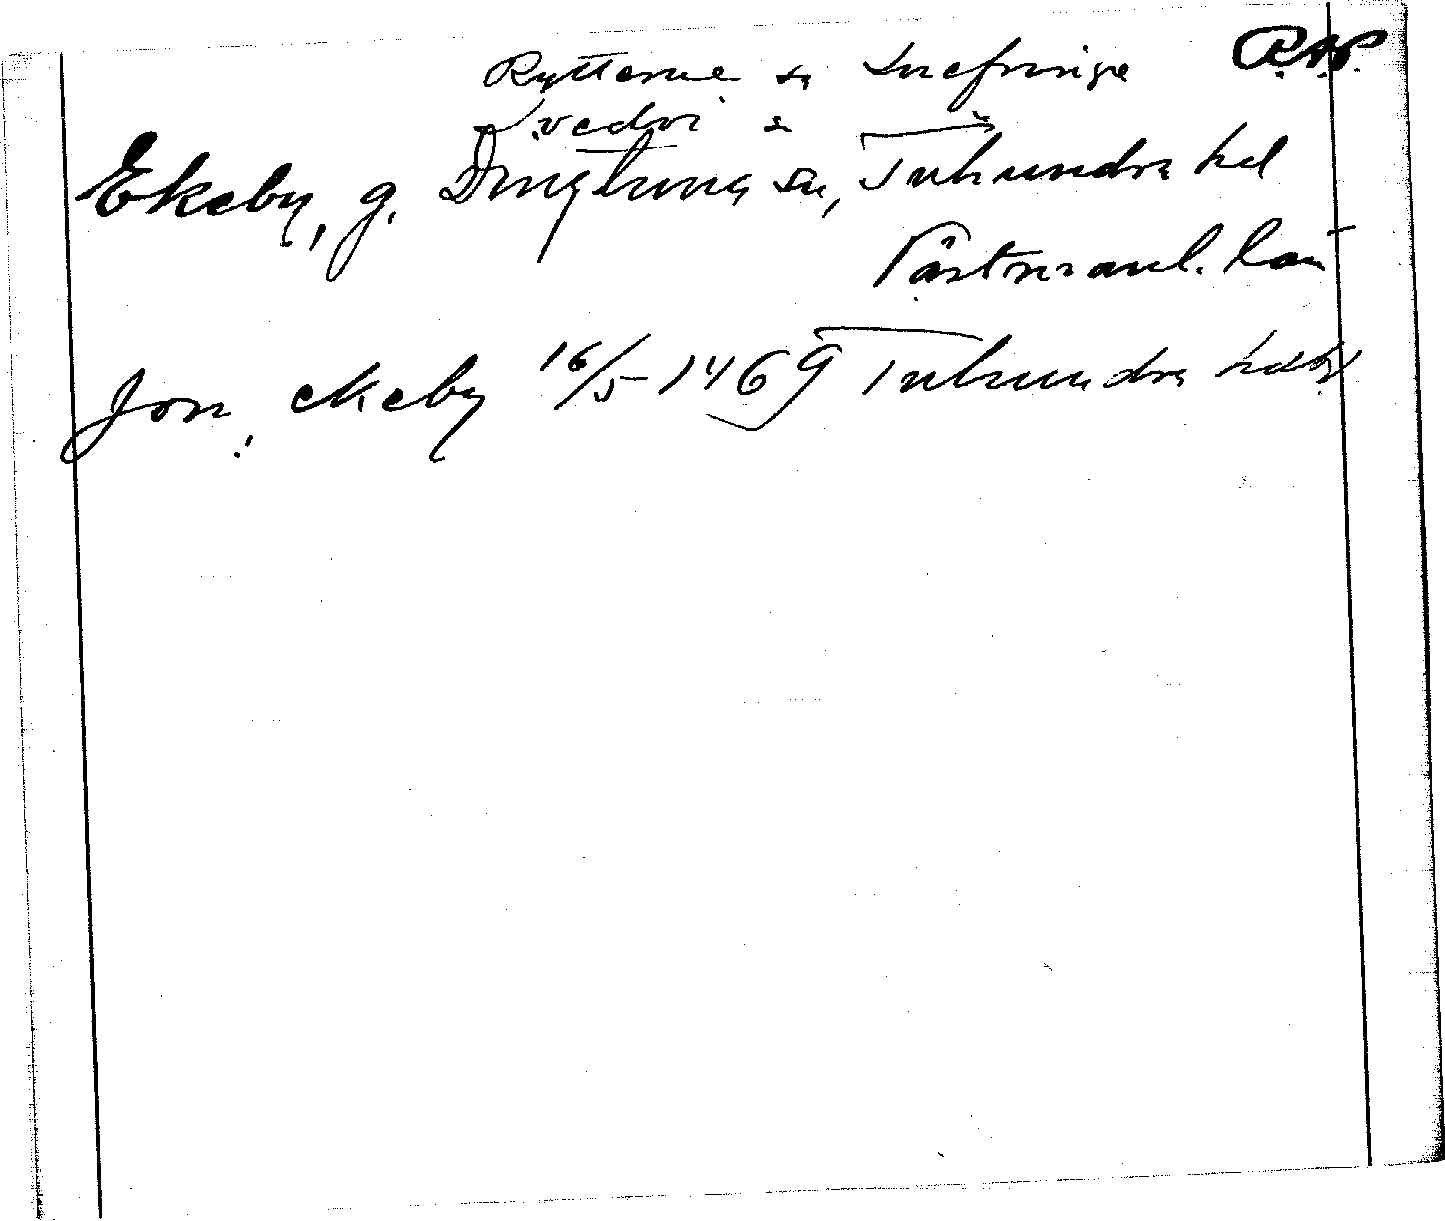 Rytterne sn Snefringe R.A.P.
Kvedvi s
Ekeby, g. Dingtuna sn, Tuhundra hd
Västmanl. län
Jon, ekeby 16/5 1469 Tuhundra